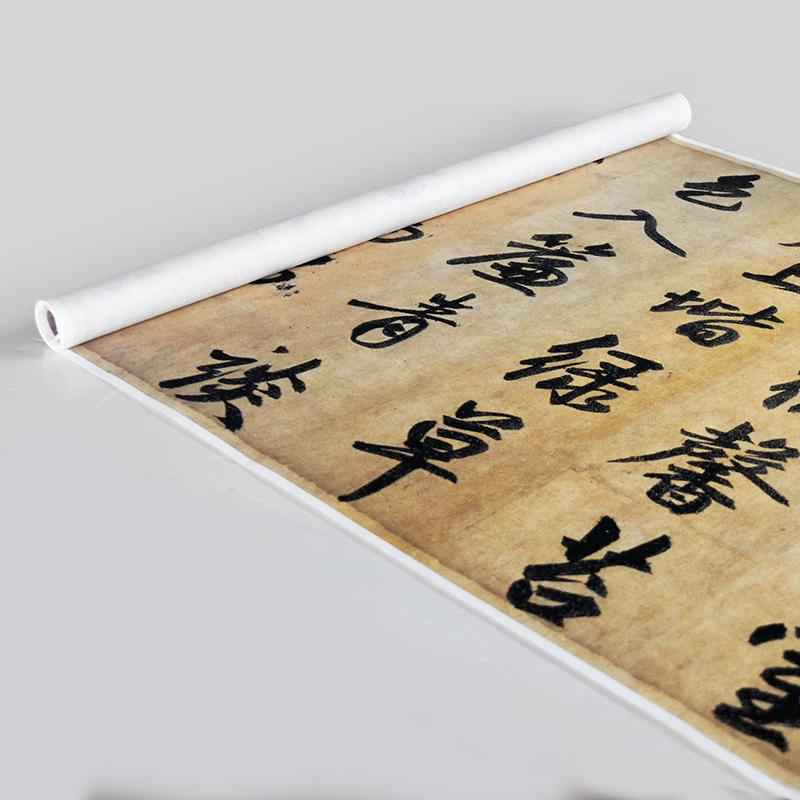 馨苔
上堦綠草
色入簾青談